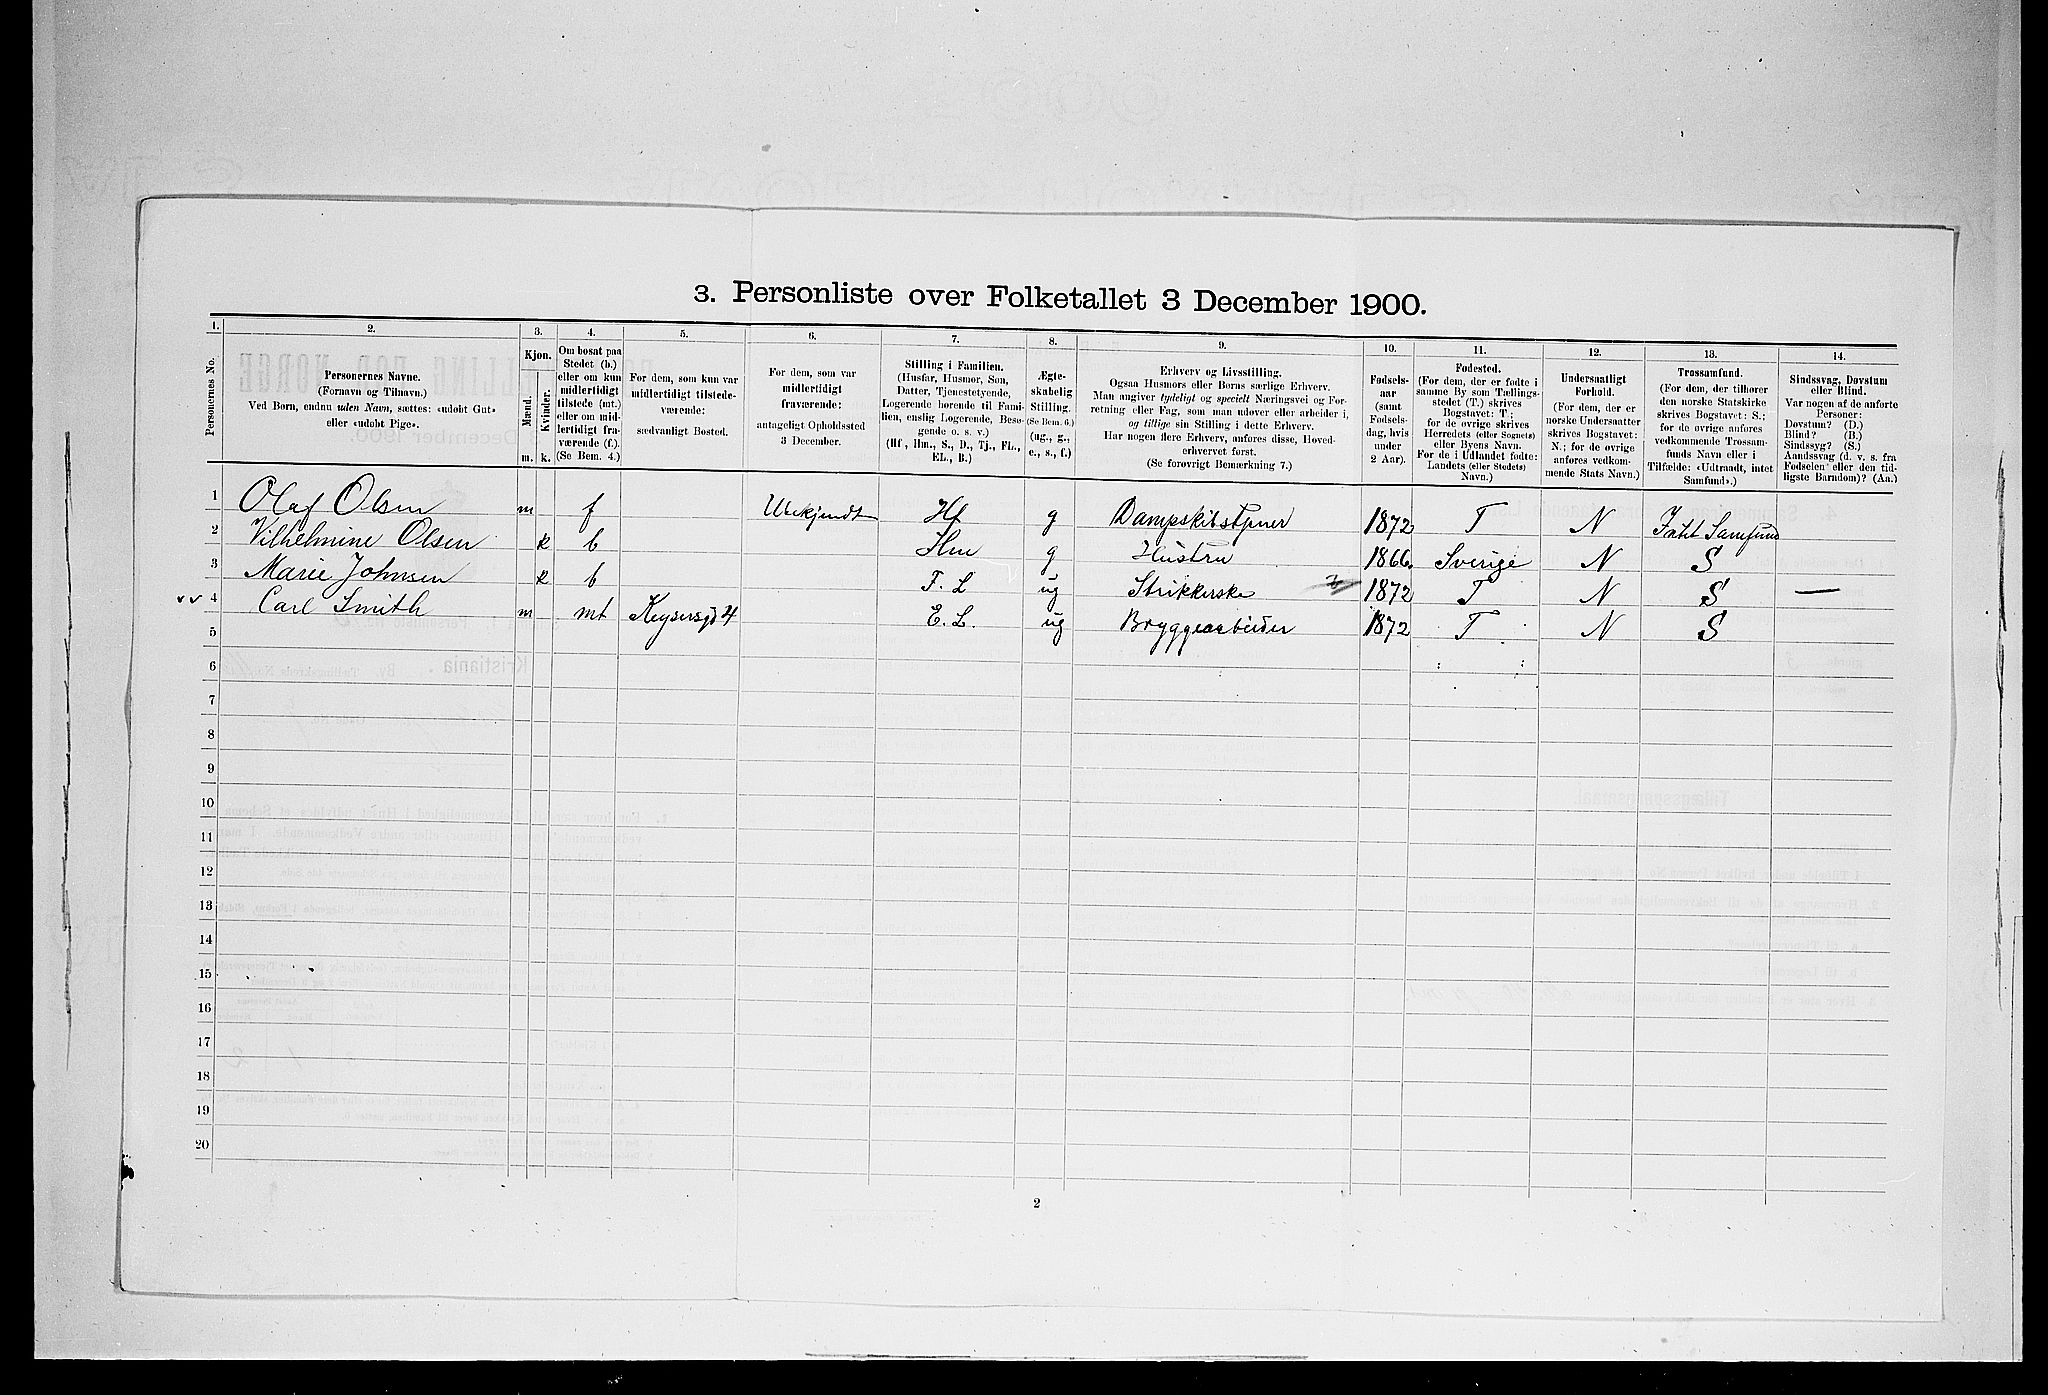 3. Personliste over Folketallet 3 December 1900.
1. 2. 3. 4. 5. 6. 7. 8. 9. 10. 11. 12. 13. 14.
Personernes No.
Personernes Navne.
(Fornavn og Tilnavn.)
Ved Børn, endnu uden Navn, sættes: «udøbt Gut»
eller «udøbt Pige».
Kjøn.
Mænd.
Kvinder.
m. k.
Om bosat paa
Stedet (b.)
eller om kun
midlertidigt
tilstede (mt.)
eller om mid-
lertidigt fra-
værende (f.).
(Se Bem. 4.)
For dem, som kun var
midlertidigt tilstede-
værende:
sædvanligt Bosted.
For dem, som var
midlertidigt
fraværende:
antageligt Opholdssted
3 December.
Stilling i Familien.
(Husfar, Husmor, Søn,
Datter, Tjenestetyende,
Logerende hørende til Fami-
lien, enslig Logerende, Besø-
gende o. s. v.)
(Hf., Hm., S., D., Tj., FL.,
EL., B.)
Ægte-
skabelig
Stilling.
(Se Bem. 6.)
(ug., g.,
e., s., f.)
Erhverv og Livsstilling.
Ogsaa Husmors eller Børns særlige Erhverv.
Man angiver tydeligt og specielt Næringsvei og For-
retning eller Fag, som man udøver eller arbeider i,
og tillige sin Stilling i dette Erhverv.
Har nogen flere Erhverv, anføres disse, Hoved-
erhvervet først.
(Se forøvrigt Bemærkning 7.)
Fødsels-
aar
(samt
Fødsels-
dag, hvis
under
2 Aar).
Fødested.
(For dem, der er fødte i
samme By som Tællings-
stedet (T.) skrives
Bogstavet: T.;
for de øvrige skrives
Herredets (eller Sognets)
eller Byens Navn.
For de i Udlandet fødte:
Landets (eller Stedets)
Navn.)
Undersaatligt
Forhold.
(For dem, der er
norske Undersaatter
skrives Bogstavet:
N.; for de øvrige
anføres vedkom-
mende Stats Navn.)
Trossamfund.
(For dem, der tilhører
den norske Statskirke
skrives Bogstavet: S.;
for de øvrige anføres
vedkommende Trossam-
funds Navn eller i
Tilfælde: «Udtraadt, intet
Samfund».)
Sindssvag, Døvstum
eller Blind.
Var nogen af de anførte
Personer:
Døvstum? (D.)
Blind? (B.)
Sindssyg? (S.)
Aandssvag (d. v. s. fra
Fødselen eller den tid-
ligste Barndom)? (Aa.)
1 Olaf Olsen m f Ubekjendt Hf g Dampskibsfyrer 1872 T N Intet Samfund
2 Vilhelmine Olsen k b Hm g Hustru 1866. Sverige N S
3 Marie Johnsen k b F. L ug Strikkerske 1872 T N S —
4 Carl Smith m mt Keysersgd 4 E. L. ug Bryggearbeider 1872 T N S
5
6
7
8
9
10
11
12
13
14
15
16
17
18
19
20
2